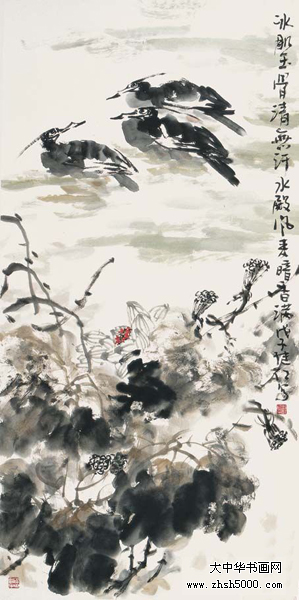 冰肌玉骨清無汗水殿風来暗香满戊子
大中华书画网
www.zhsh5000.com